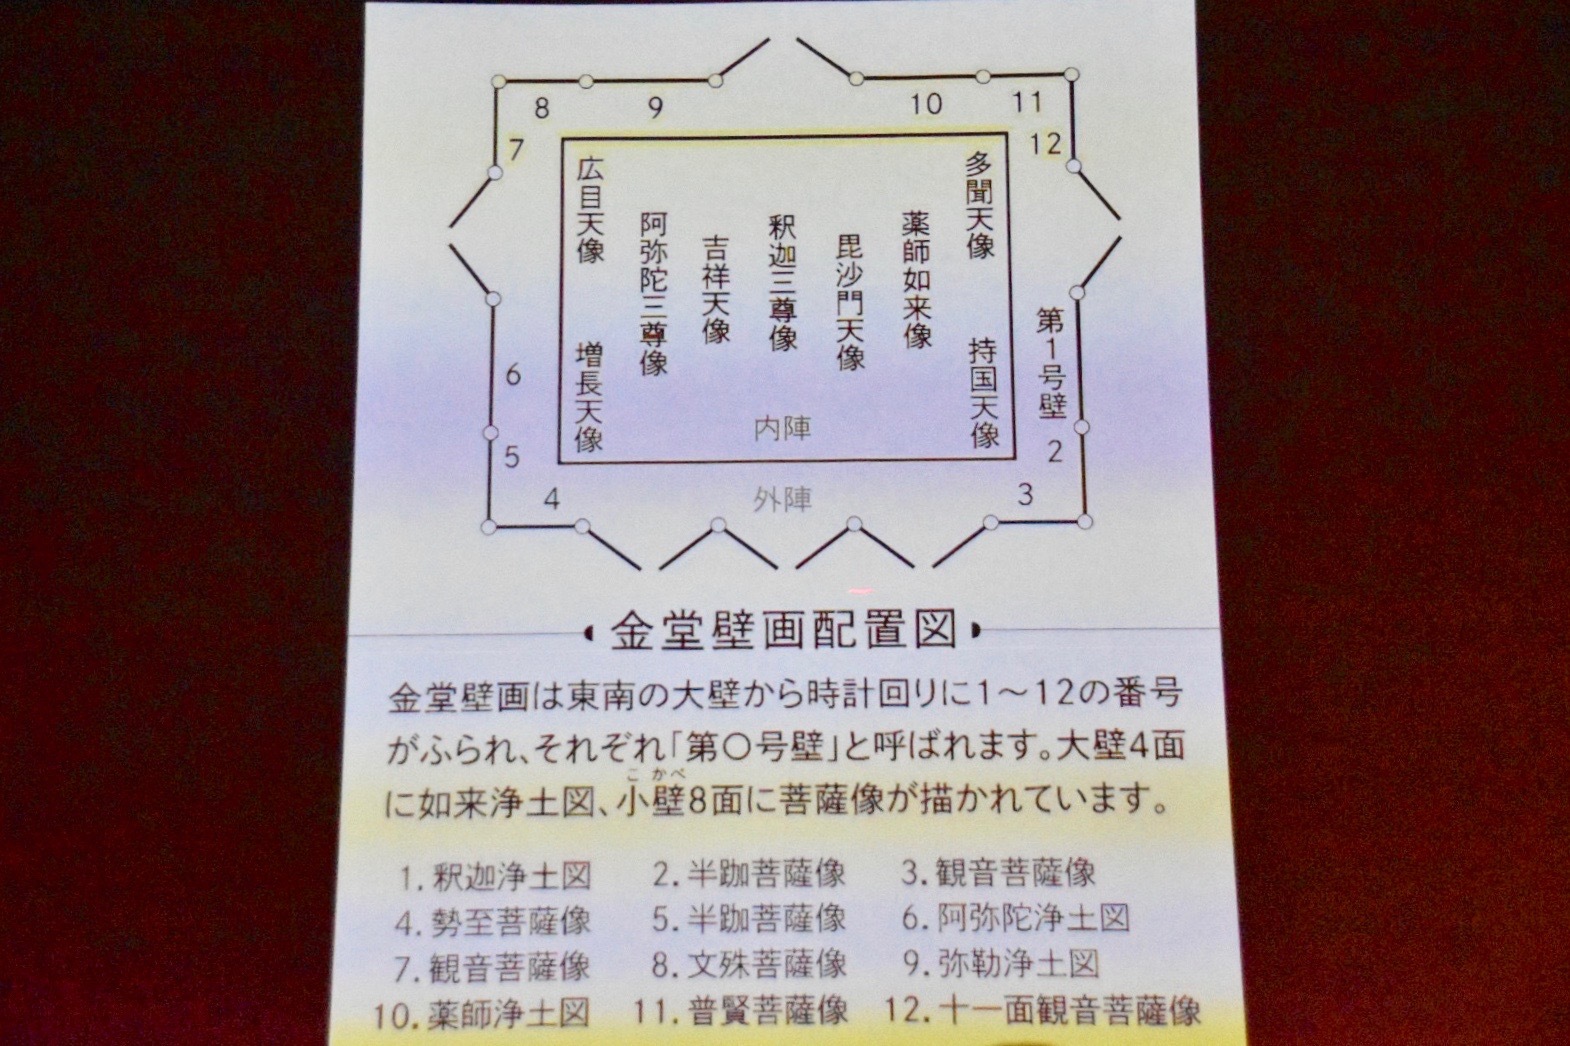 8 9 10 11
7 12
広目天像
阿弥陀三尊像
吉祥天像
釈迦三尊像
毘沙門天像
薬師如来像
多聞天像
増長天像
持国天像
第1号壁
6
5 2
4 3
内陣
外陣
金堂壁画配置図
金堂壁画は東南の大壁から時計回りに1〜12の番号
がふられ、それぞれ「第〇号壁」と呼ばれます。大壁4面
こ かべ
に如来浄土図、小壁8面に菩薩像が描かれています。
1. 釈迦浄土図 2. 半跏菩薩像 3. 観音菩薩像
4. 勢至菩薩像 5. 半跏菩薩像 6. 阿弥陀浄土図
7. 観音菩薩像 8. 文殊菩薩像 9. 弥勒浄土図
10. 薬師浄土図 11. 普賢菩薩像 12. 十一面観音菩薩像